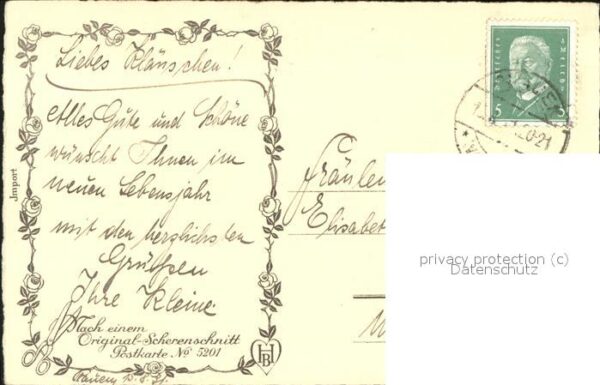 Liebes Kläuschen!
Alles Gute und Schöne
wünscht Ihnen im
neuen Lebensjahr
mit den herzlichsten
Grüßen
Ihre Kleine
Nach einem
Original-Scherenschnitt
Postkarte No 5201
Jmport
HB
Deutsches Reich
5 5
20-21
Fräulein
Elisabet
privacy protection (c)
Datenschutz